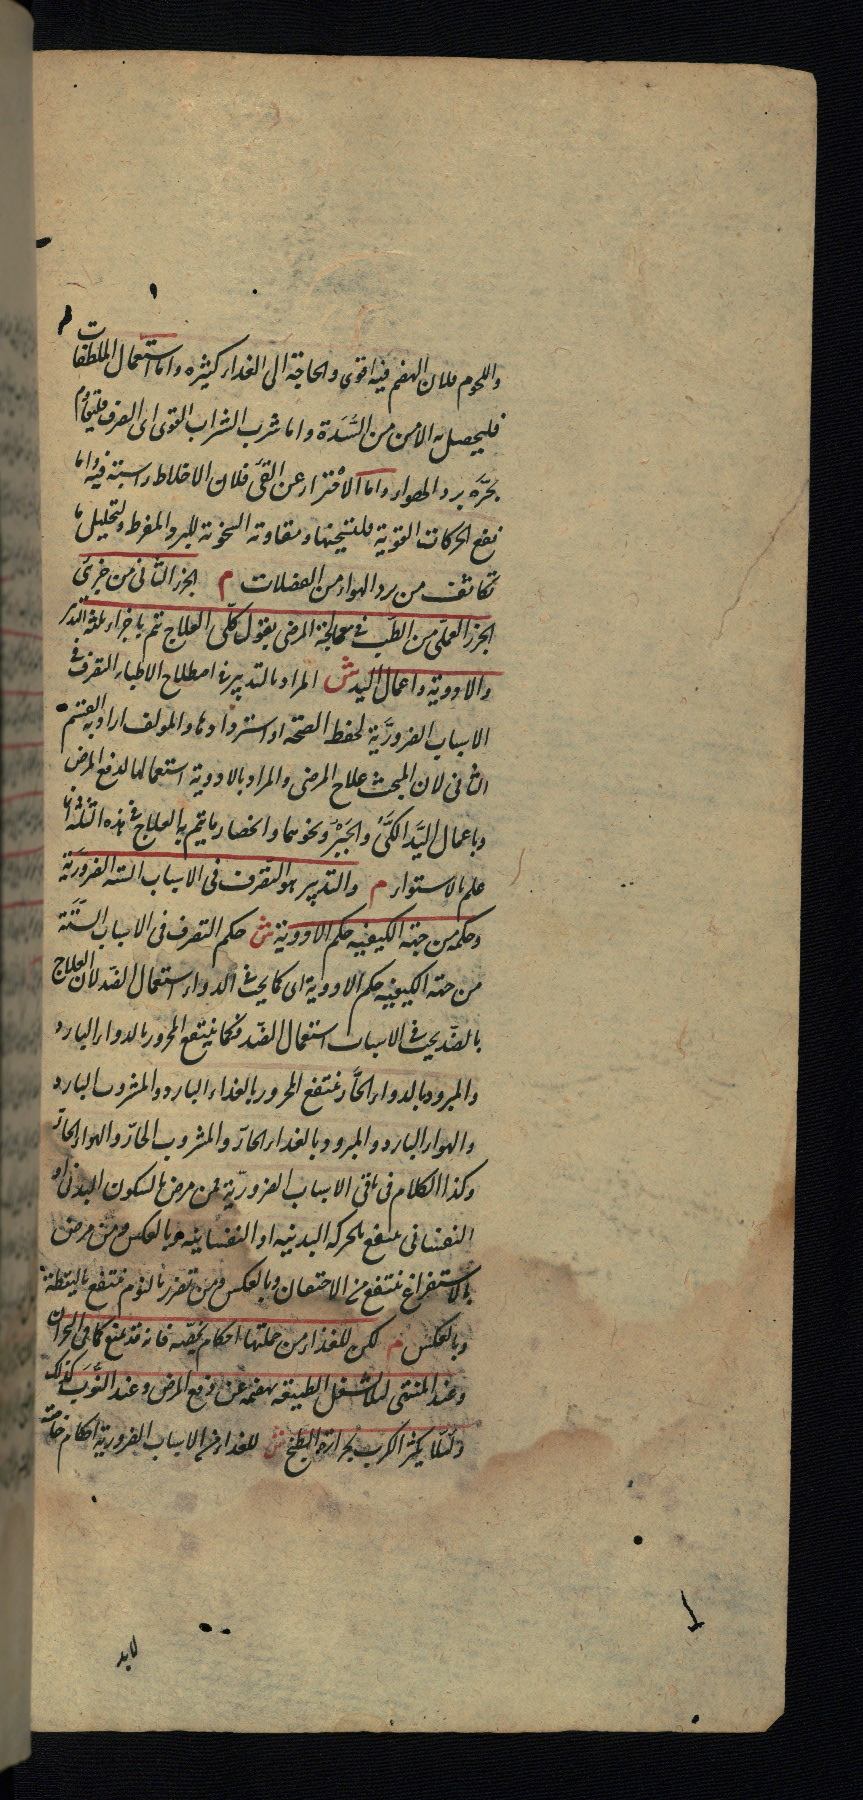 واللحوم فلان الهضم فيه اقوى والحاجة الى الغذاء كثيره واما استعمال الملطفات
فليحصل به الامن من السَّدَة واما شرب الشراب القوى اى الصرف فليقاوم
بحرّه برد الهواء واما الاحتراز عن القئ فلان الاخلاط راسبة فيه واما
نفع الحركات القوية فلتسخينها ومقاومة السخونة للبرد المفرط ولتحليل ما
تكاثف من برد الهواء من الفضلات م الجزء الثانى من جزئ
الجزء العملى من الطب فى معالجة المرضى بقول كلّى العلاج يتم باجزاء ثلثة التدبير
والادوية واعمال اليد ش المراد بالتدبير فى اصطلاح الاطباء التصرف فى
الاسباب الضروريّة لحفظ الصحة او استردادها والمولف اراد به القسم
الثانى لان المبحث علاج المرضى والمراد بالادوية استعمالها لدفع المرض
وباعمال اليَد الكىّ والجَبْر ونحوهما وانحصار ما يتم به العلاج فى هذه الثلثة انما
علم بالاستقراء م والتدبير هو التصرف فى الاسباب الستة الضرورية
وحكمه من جهة الكيفية حكم الادوية ش حكم التصرف فى الاسباب الستّة
من جهة الكيفية حكم الادوية اى كما يجب فى الدواء استعمال الضد لان العلاج
بالضد يجب فى الاسباب استعمال الضد فكما ينتفع المحرور بالدواء البارد
والمبرود بالدواء الحارّ ينتفع المحرور بالغذاء البارد والمشروب البارد
والهواء البارد والمبرود بالغذاء الحارّ والمشروب الحارّ والهواء الحارّ
وكذا الكلام فى باقى الاسباب الضروريّة فمن مرض بالسكون البدنى او
النفسانى ينتفع بالحركة البدنية او النفسانية وبالعكس ومن مرض
بالاستفراغ ينتفع من الاحتقان وبالعكس ومن تضرر بالنوم ينتفع باليقظة
وبالعكس م لكن للغذاء من جملتها احكام يخصّه فانه قد يمنع كما فى البحران
وعند المنتهى لئلا تشتغل الطبيعة بهضمه عن دفع المرض وعند النُّوَب كذلك
ولئلّا يكثر الكرب بحرارة الطبخ ش للغذاء من الاسباب الضرورية احكام خاصة
لابد